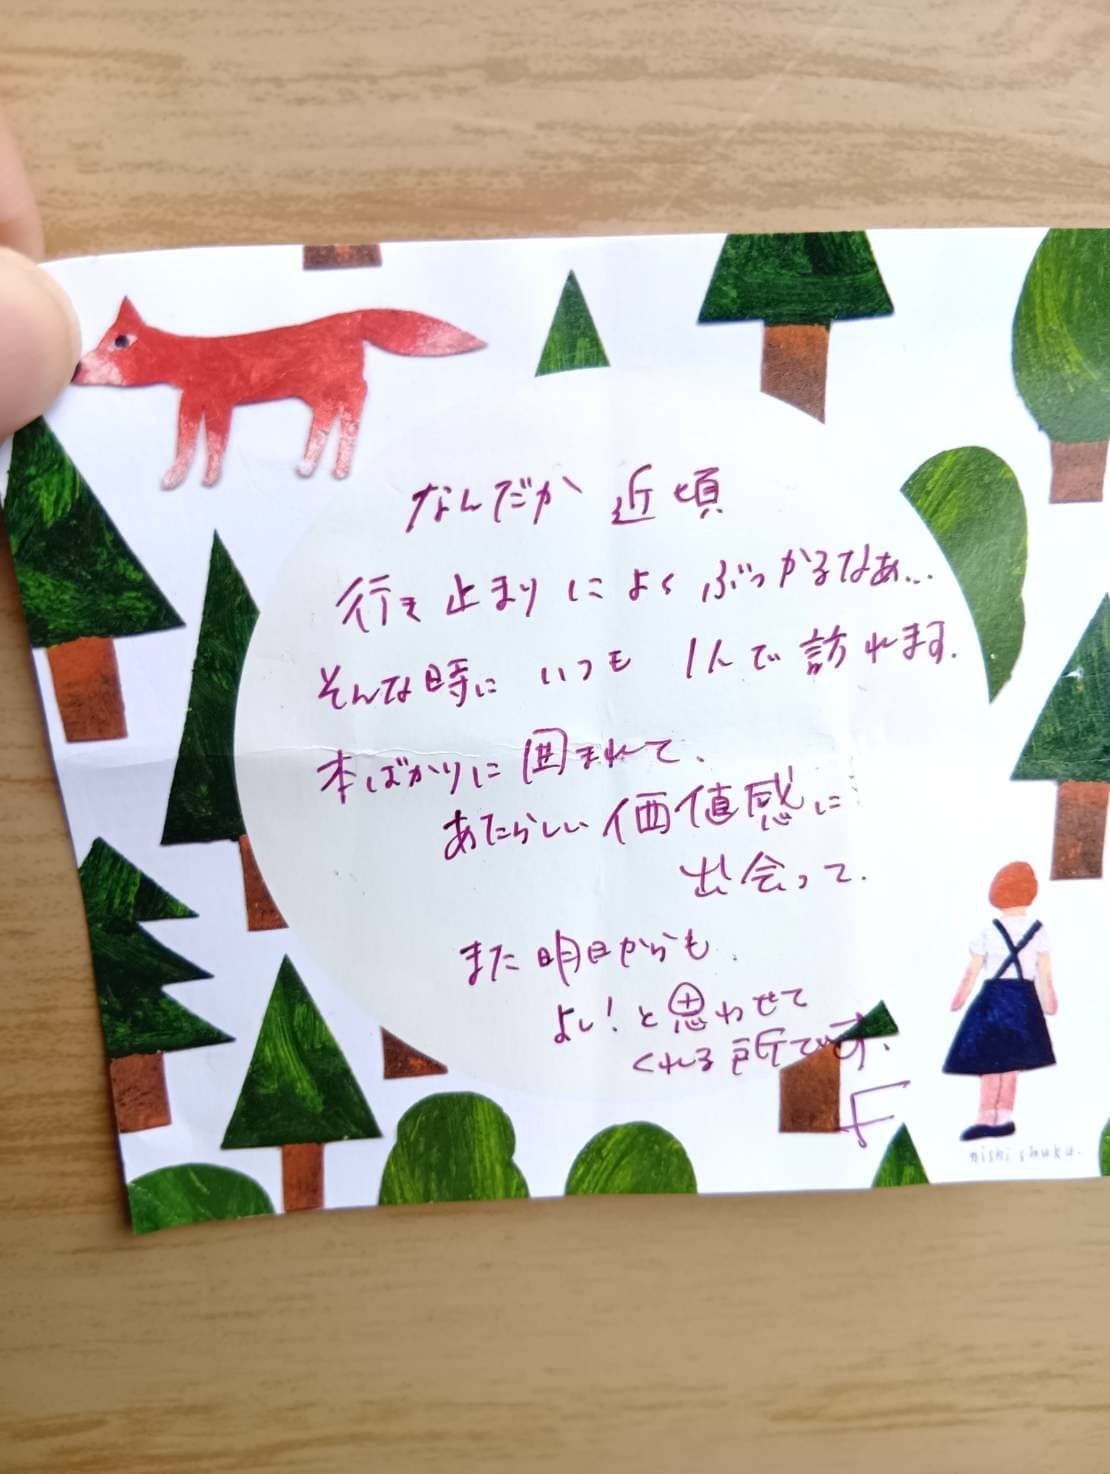 なんだか 近頃
行き止まりによくぶつかるなぁ...
そんな時に いつも 1人で訪れます.
本ばかりに囲まれて、
あたらしい価値感に
出会って.
また明日からも
よし!と思わせて
くれる所です.
F
nishi shuku.